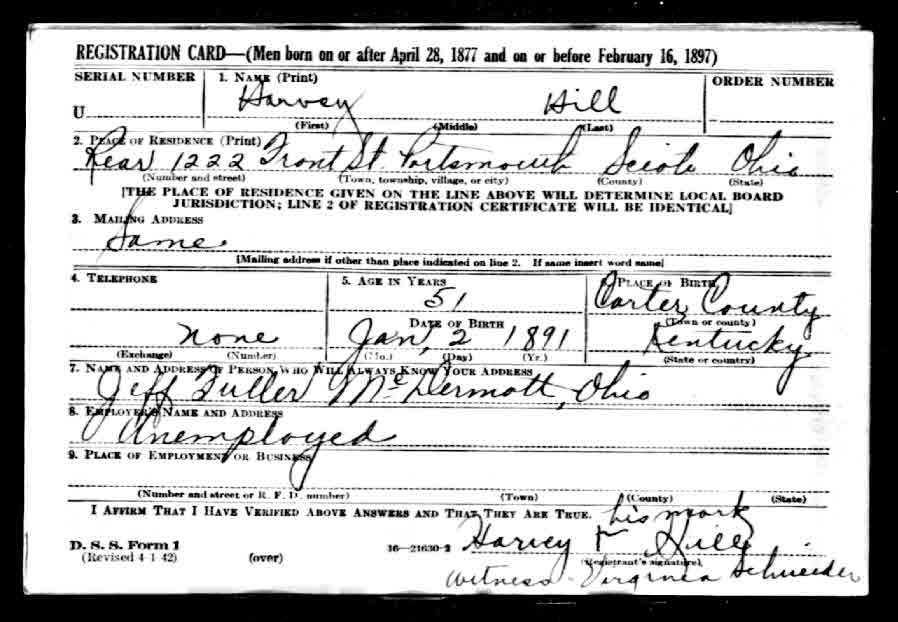 REGISTRATION CARD—(Men born on or after April 28, 1877 and on or before February 16, 1897)
SERIAL NUMBER 1. NAME (Print) ORDER NUMBER
U Harvey Hill
(First) (Middle) (Last)
2. PLACE OF RESIDENCE (Print)
Rear 1222 Front St. Portsmouth Scioto Ohio
(Number and street) (Town, township, village, or city) (County) (State)
[THE PLACE OF RESIDENCE GIVEN ON THE LINE ABOVE WILL DETERMINE LOCAL BOARD
JURISDICTION; LINE 2 OF REGISTRATION CERTIFICATE WILL BE IDENTICAL]
3. MAILING ADDRESS
Same
[Mailing address if other than place indicated on line 2. If same insert word same]
4. TELEPHONE 5. AGE IN YEARS 6. PLACE OF BIRTH
51 Carter County
DATE OF BIRTH (Town or county)
none Jan, 2 1891 Kentucky
(Exchange) (Number) (Mo.) (Day) (Yr.) (State or country)
7. NAME AND ADDRESS OF PERSON WHO WILL ALWAYS KNOW YOUR ADDRESS
Jeff Fuller McDermott, Ohio
8. EMPLOYER'S NAME AND ADDRESS
Unemployed
9. PLACE OF EMPLOYMENT OR BUSINESS
(Number and street or R. F. D. number) (Town) (County) (State)
I AFFIRM THAT I HAVE VERIFIED ABOVE ANSWERS AND THAT THEY ARE TRUE.
his mark
D. S. S. Form 1 16—21630-2 Harvey + Hill
(Revised 4-1-42) (over) (Registrant's signature)
Witness - Virginia Schneider